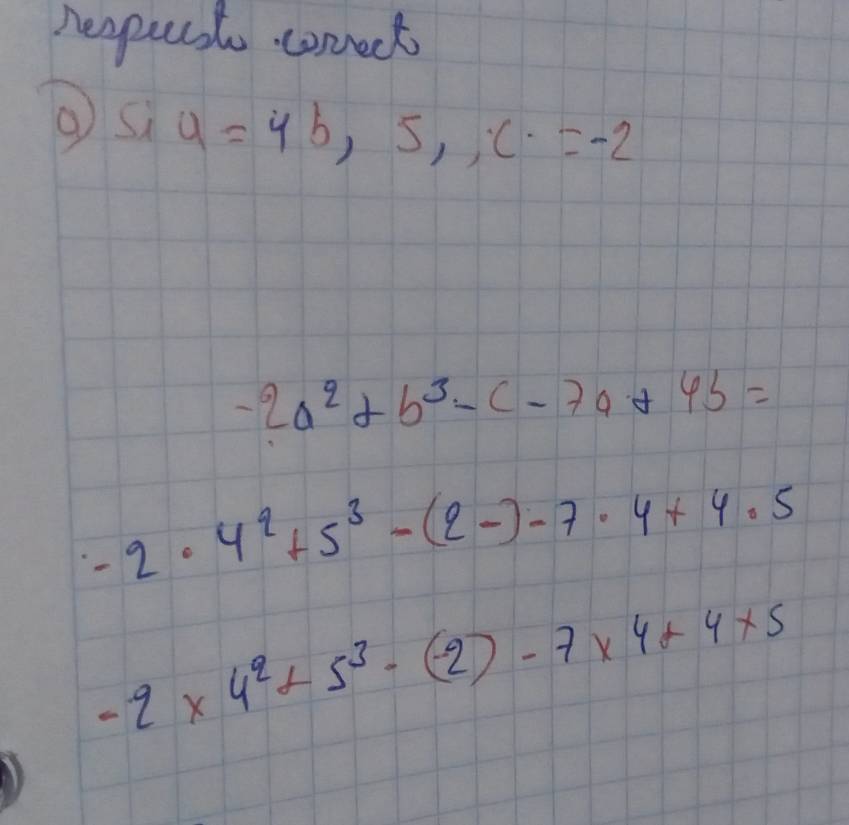 respuesta correcta
a) Si a = 4 b, 5, , c = -2
-2a² + b³ - c - 7a + 4b =
-2 · 4² + 5³ - (2 -) - 7 · 4 + 4 · 5
-2 x 4² + 5³ - (-2) - 7 x 4 + 4 x 5